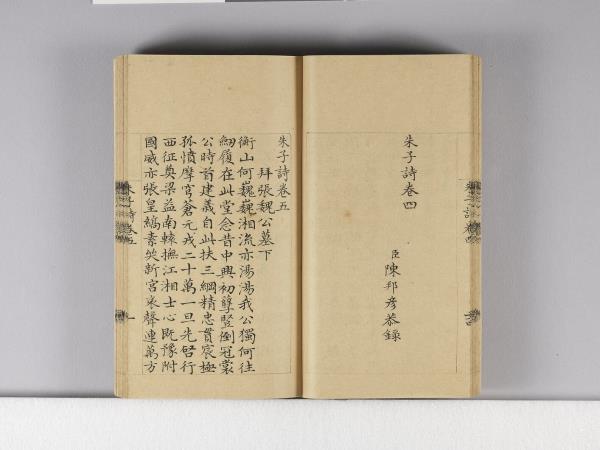 朱子詩卷四
臣陳邦彦恭錄
朱子詩卷五
拜張魏公墓下
衡山何巍巍湘流亦湯湯我公獨何往
劒履在此堂念昔中興初孽豎倒冠裳
公時首建義自此扶三綱精忠貫宸極
孤憤摩穹蒼元戎二十萬一旦先啓行
西征奠梁益南轅撫江湘士心既豫附
國威亦張皇縞素哭新宮哀聲連萬方